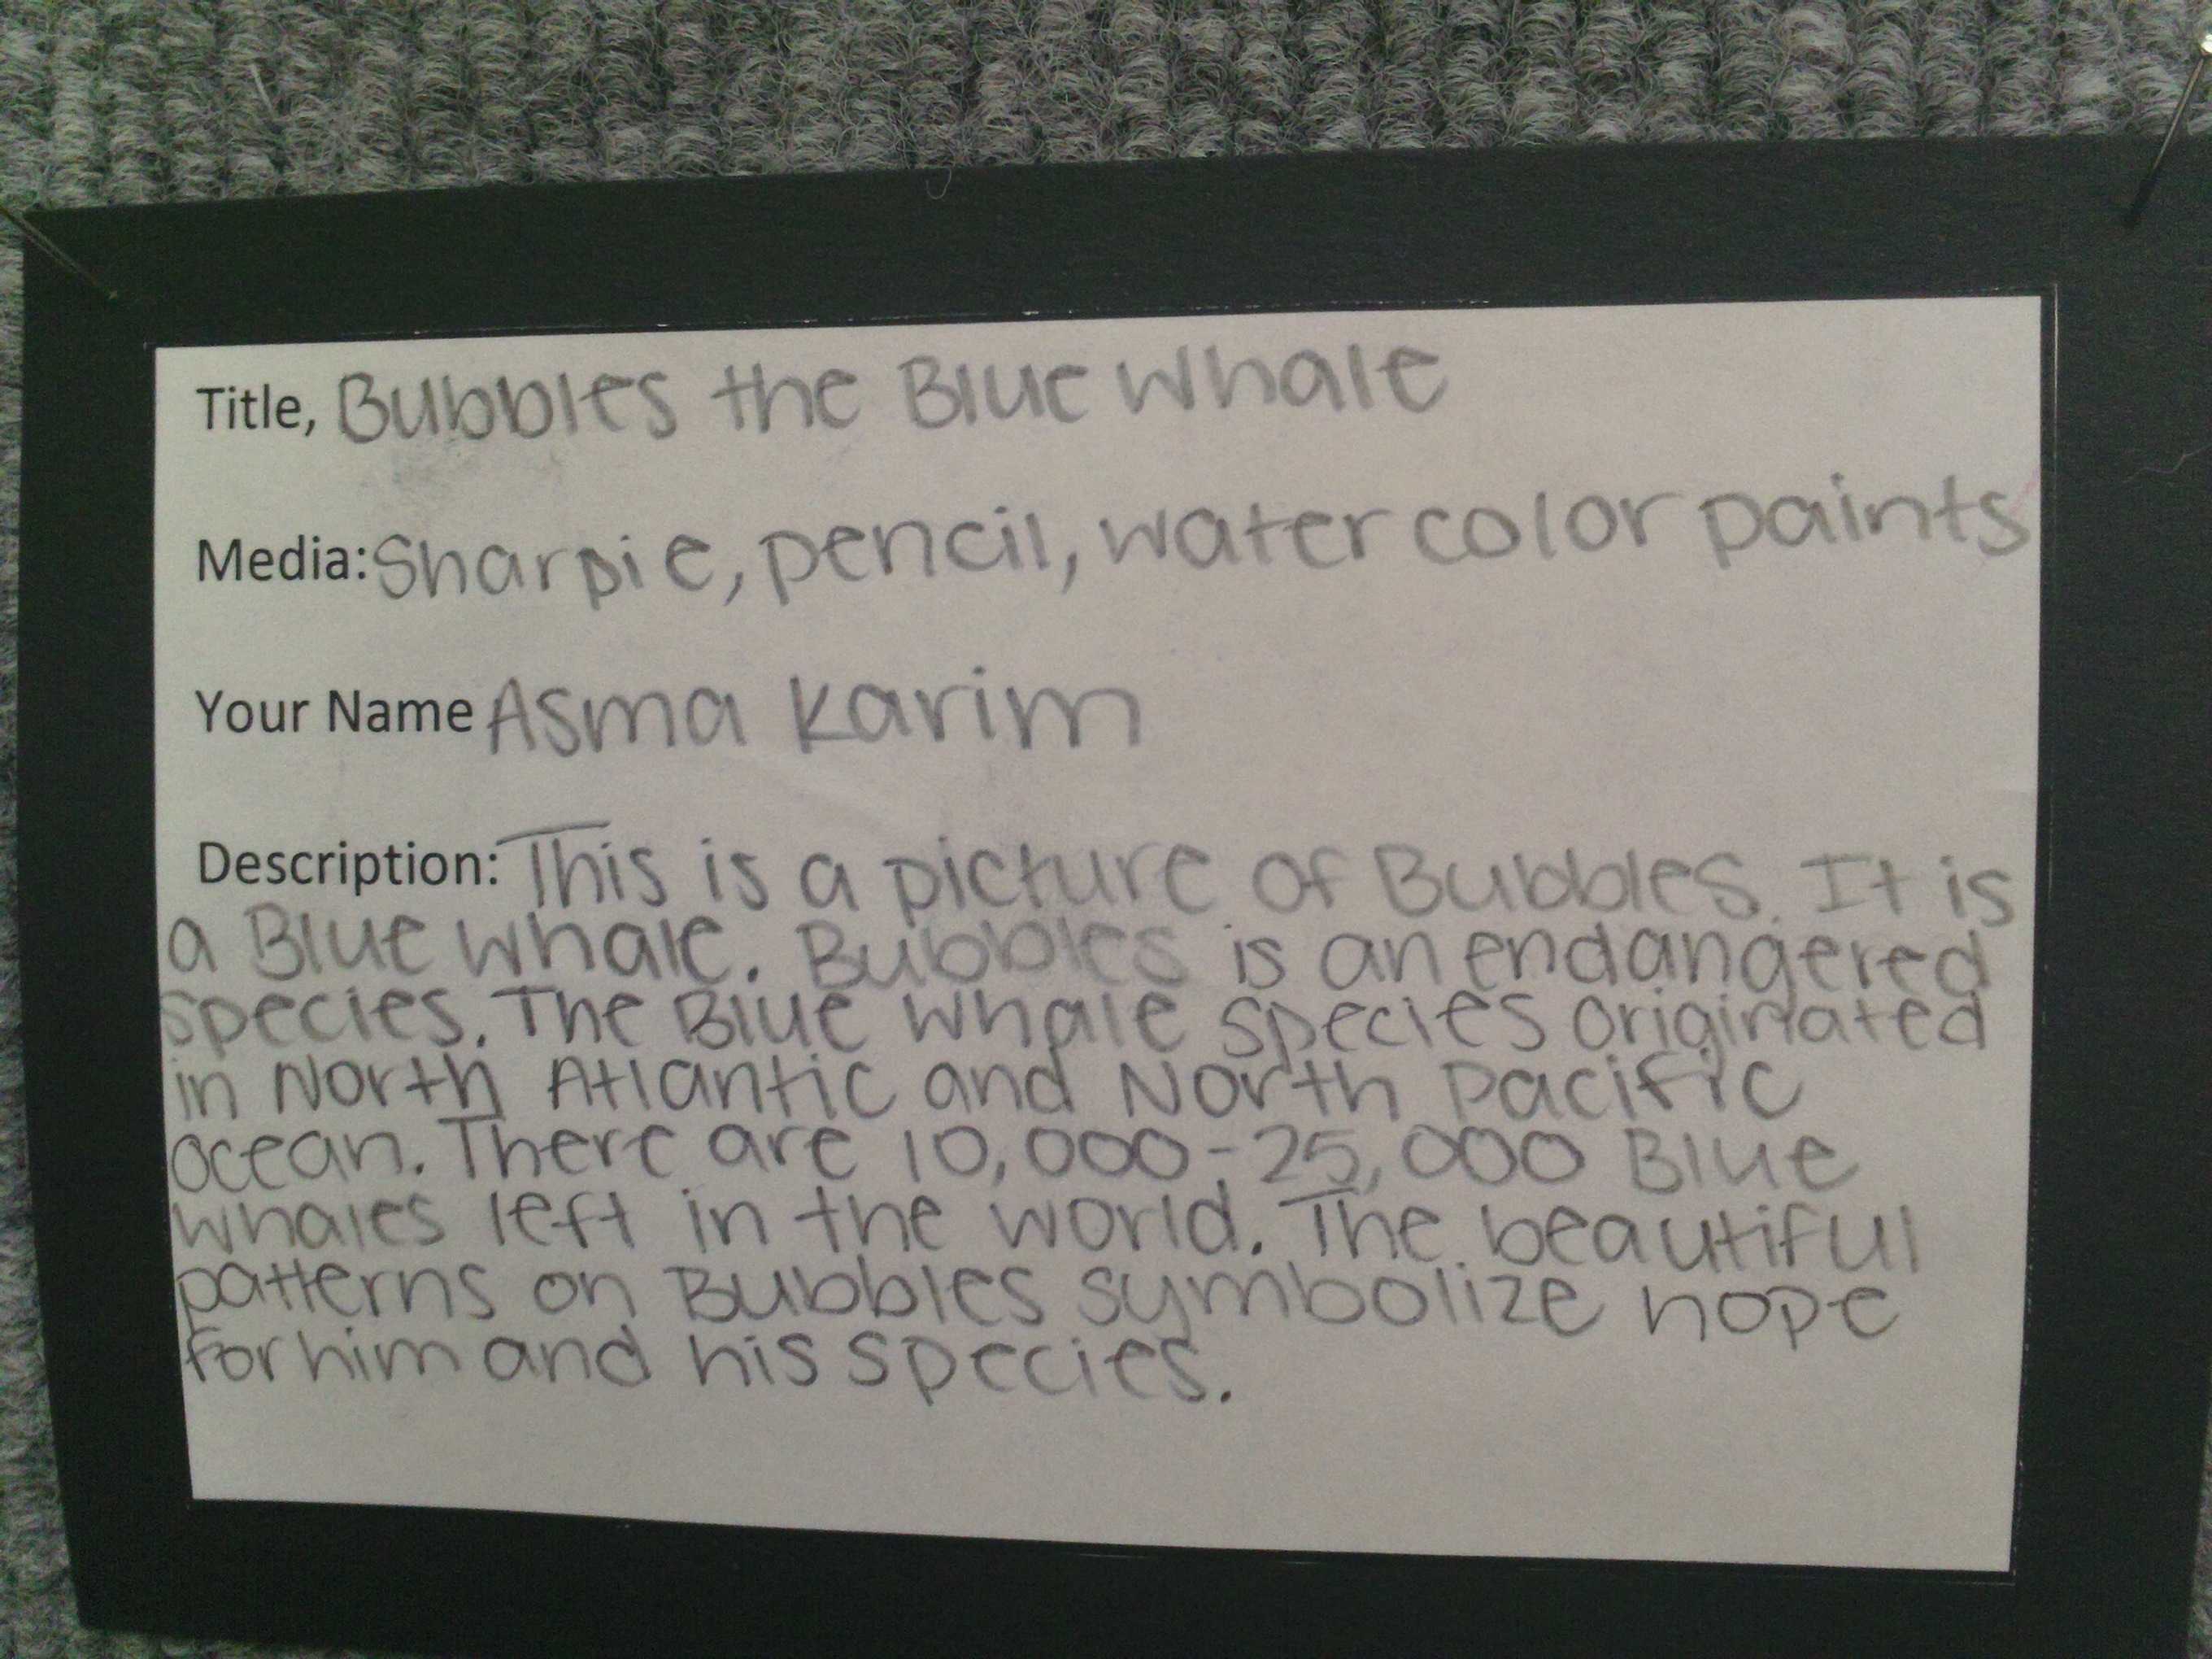 Title, Bubbles the Blue Whale
Media: Sharpie, pencil, water color paints
Your Name Asma Karim
Description: This is a picture of Bubbles. It is
a Blue Whale. Bubbles is an endangered
species. The Blue Whale species originated
in North Atlantic and North Pacific
Ocean. There are 10,000-25,000 Blue
Whales left in the world. The beautiful
patterns on Bubbles symbolize hope
for him and his species.